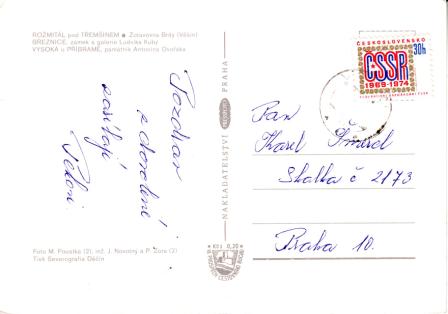 ROŽMITÁL pod TŘEMŠÍNEM ● Zotavovna Brdy (Věšín)
BŘEZNICE, zámek a galerie Ludvíka Kuby
VYSOKÁ u PŘÍBRAMĚ, památník Antonína Dvořáka
Pozdrav
z dovolené
zasílají
NAKLADATELSTVÍ
PRESSFOTO
PRAHA
ČESKOSLOVENSKO
30h
ČSSR
1969-1974
Pan
Karel
Skalka č 2173
Praha 10.
Foto M. Povolka (2), inž. J. Novotný a P. Zora (2)
Tisk Severografia Děčín
Kčs 0,20